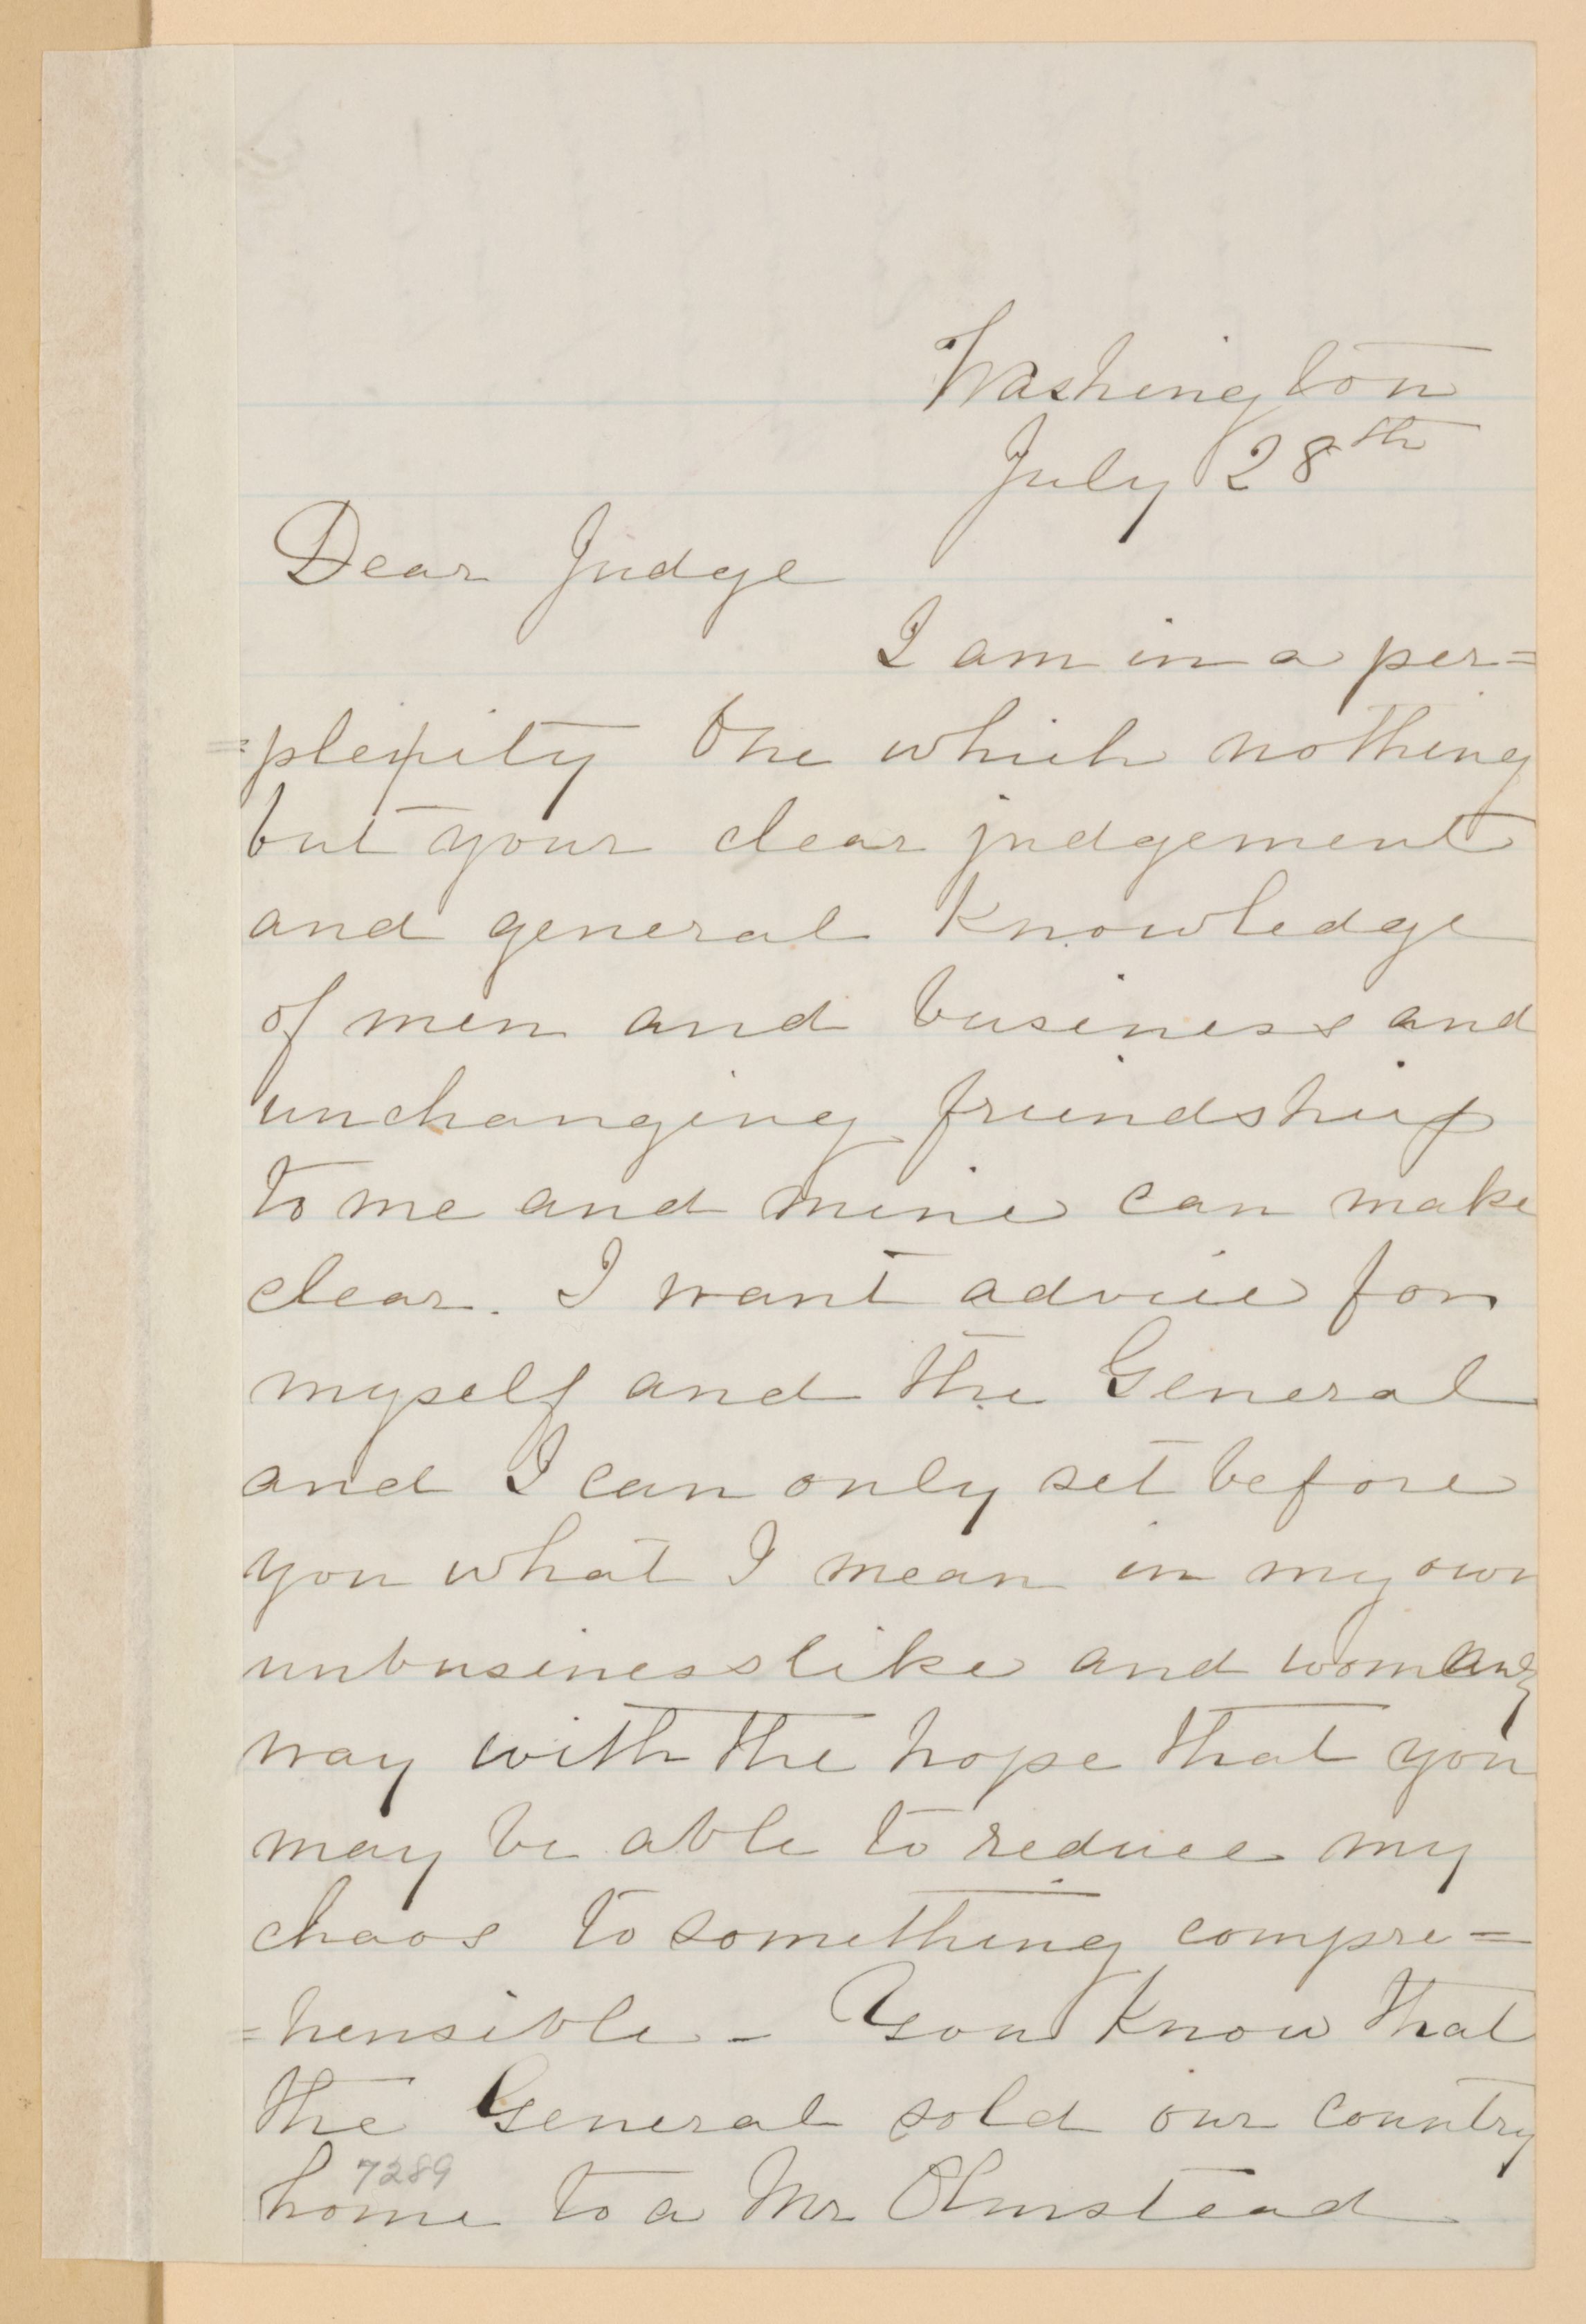 Washington
July 28th
Dear Judge
I am in a per=
=plexity One which nothing
but your clear judgement
and general knowledge
of men and business and
unchanging friendship
to me and mine can make
clear. I want advice for
myself and the General
and I can only set before
you what I mean in my own
unbusinesslike and womanly
way with the hope that you
may be able to reduce my
chaos to something compre=
=hensible - You know that
the General sold our country
7289
home to a Mr Olmstead